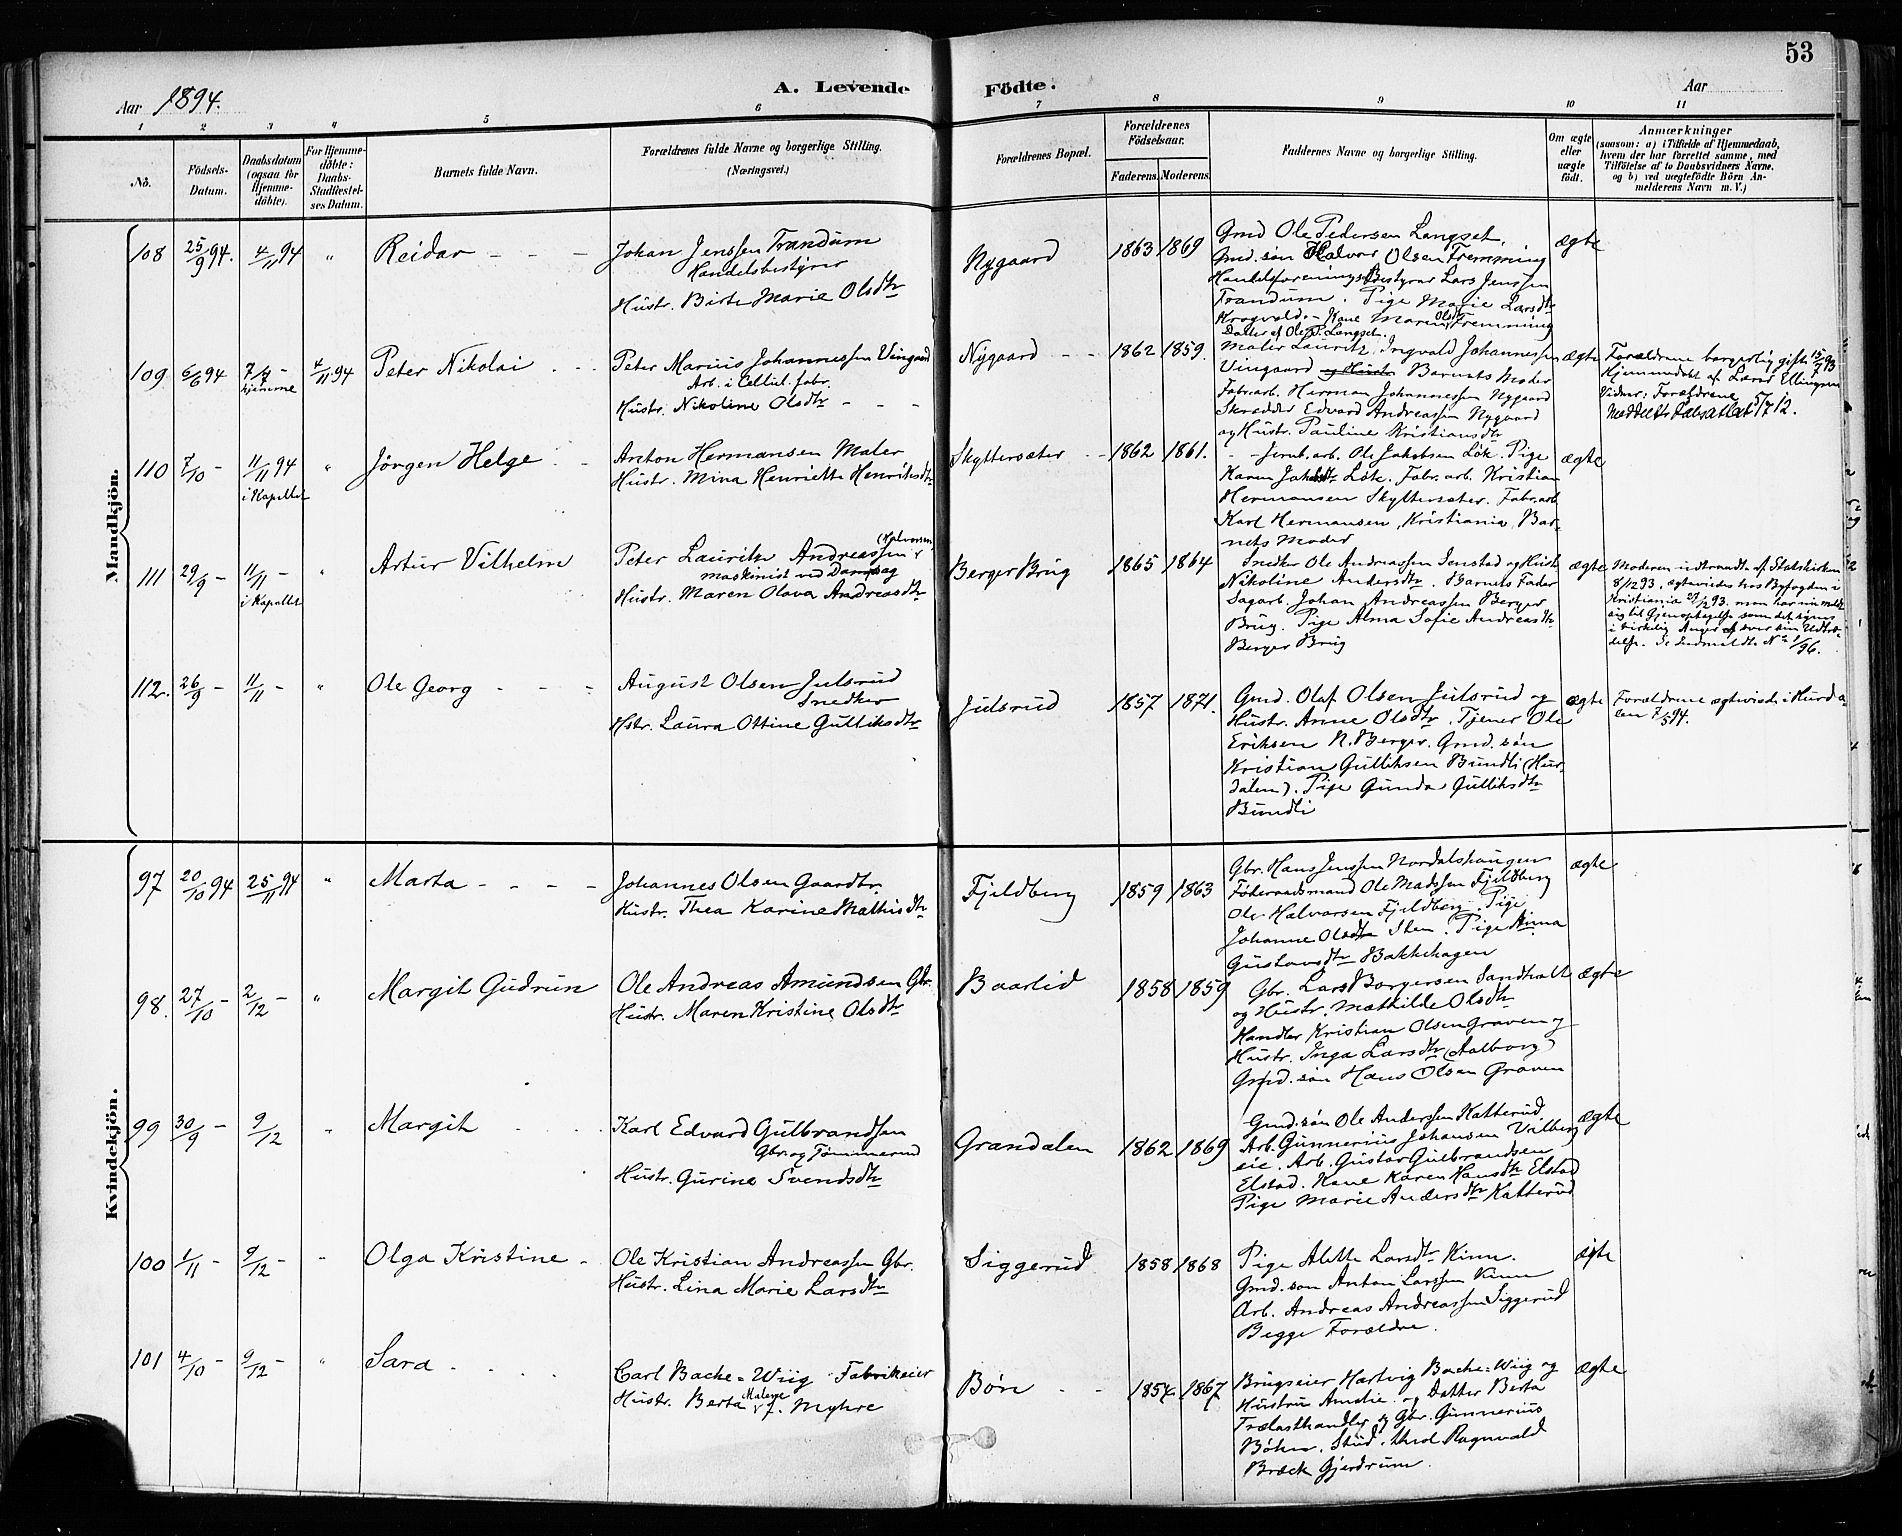 53
Aar 1894.
A. Levende Födte.
Aar
1 2 3 4 5 6 7 8 9 10 11
No.
Födsels-Datum.
Daabsdatum (ogsaa for Hjemme-döbte).
For Hjemme-döbte: Daabs-Stadfæstel-ses Datum.
Barnets fulde Navn.
Forældrenes fulde Navne og borgerlige Stilling. (Næringsvei.)
Forældrenes Bopæl.
Forældrenes Födselsaar.
Faderens. Moderens.
Faddernes Navne og borgerlige Stilling.
Om ægte eller uægte födt.
Anmærkninger
(saasom: a) i Tilfælde af Hjemmedaab, hvem der har forrettet samme, med Tilföielse af to Daabsvidners Navne, og b) ved uegtefödte Börn An-melderens Navn m. V.)
Mandkjön.
108 25/9 94. 4/11 94 " Reidar
Johan Jenssen Trandum
Handelsbestyrer
Hustr. Birte Marie Olsdtr
Nygaard 1863 1869
Gmd Ole Pedersen Langset,
Gmd. søn Halvor Olsen Fremming
Handelsforenings Bestyrer Lars Jenssen
Trandum. Pige Marie Larsdtr
Krogvold. Kone Maren Olsdtr Fremming
Datter af Ole P. Langset.
ægte
109 6/6 94 7/7 - hjemme 4/11 94 Peter Nikolai
Peter Marius Johannessen Vingaard
Arb. i Cellul. fabr.
Hustr. Nikoline Olsdtr
Nygaard 1862 1859.
Maler Lauritz Ingvald Johannessen
Vingaard Barnets Moder
Fabr.arb. Herman Johannessen Nygaard
Skrædder Edvard Andreassen Nygaard
og Hustr. Pauline Kristiansdtr
ægte
Forældrene borgerlig gifte 15/7 93
Hjemmedøbt af Lærer Ellingsen
Vidner: Forældrene
Meddelt Daabsattest 5/7 12.
110 7/10 - 11/11 94 i Kapellet " Jörgen Helge
Anton Hermansen Maler
Hustr. Mina Henriette Henriksdtr
Skyttersæter 1862 1861.
Jernb.arb. Ole Jakobsen Lök. Pige
Karen Jakobsdtr Lök. Fabr. arb. Kristian
Hermansen Skyttersæter. Fabr.arb
Karl Hermansen, Kristiania, Bar-
nets Moder
ægte
111 29/9 - 11/11 - i Kapellet " Artur Vilhelm
Peter Lauritz Andreassen (Halvorsen)
Maskinist ved Dampsag
Hustr. Maren Olova Andreasdtr
Berger Brug 1865 1864
Snedker Ole Andreassen Jenstad og Hustr
Nikoline Andersdtr. Barnets Fader
Sagarb. Johan Andreassen Berger
Brug. Pige Alma Sofie Andreasdtr
Berger Brug
ægte
Moderen udtraadt af Statskirken
8/12 93. ægteviedes hos Byfogden i
Kristiania 29/12 93. men har nu meldt
sig til Gjenoptagelse som det synes
i virkelig Anger over sin Udtræ-
delse. Se Indmeldte No 1/96.
112. 26/9 - 11/11 - " Ole Georg
August Olsen Julsrud
Snedker
Hstr. Laura Ottine Gulliksdtr
Julsrud 1857 1871.
Gmd. Olaf Olsen Julsrud og
Hustr. Anne Olsdtr. Tjener Ole
Eriksen N. Berger. Gmd. søn
Kristian Gulliksen Bundli (Hur-
dalen). Pige Gunda Gulliksdtr
Bundli
ægte
Forældrene ægteviede i Hurda-
len 7/5 94.
Kvindekjön.
97 20/10 94 25/11 94 " Marta
Johannes Olsen Gaardbr.
Hustr. Thea Karine Mathisdtr
Fjeldberg 1859 1863
Gbr. Hans Jenssen Nordalshaugen
Föderaadsmand Ole Madssen Fjeldberg
Ole Halvorsen Fjeldberg. Pige
Johanne Olsdtr Sten. Pige Anna
Gustavsdtr Bakkehagen
ægte
98. 27/10 - 2/12 - " Margit Gudrun
Ole Andreas Amundsen Gbr.
Hustr. Maren Kristine Olsdtr
Baarlid 1858 1859
Gbr. Lars Borgersen Sandholt
og Hustr. Mathilde Olsdtr
Handler Kristian Olsen Graven og
Hustr. Inga Larsdtr (Aalborg)
Gmd. søn Hans Olsen Graven
ægte
99 30/9 - 9/12 " Margit
Karl Edvard Gulbrandsen
Gbr. og Tømmermd
Hustr. Gurine Svendsdtr
Grandalen 1862 1869
Gmd. søn Ole Anderssen Katterud
Arb. Gunnerius Johansen Vilberg
eie. Arb. Gustav Gulbrandsen
Elstad. Kone Karen Hansdtr Elstad
Pige Marie Andersdtr Katterud
ægte
100 1/11 - 9/12 - " Olga Kristine
Ole Kristian Andreassen Gbr.
Hustr. Lina Marie Larsdtr
Siggerud 1858 1868
Pige Alette Larsdtr Kinn.
Gmd. søn Anton Larssen Kinn
Arb. Andreas Andreassen Siggerud
Begge Forældre.
ægte
101 4/10 - 9/12 - " Sara
Carl Bache=Wiig Fabrikeier
Hustr. Berta Malene f. Myhre
Bøn 1854 1867
Brugseier Hartvig Bache=Wiig og
Hustru Amalie og Datter Berta
Trælasthandler og Gbr. Gunnerius
Böhn. Stud. Med Ragnvald
Bræck Gjerdrum.
ægte